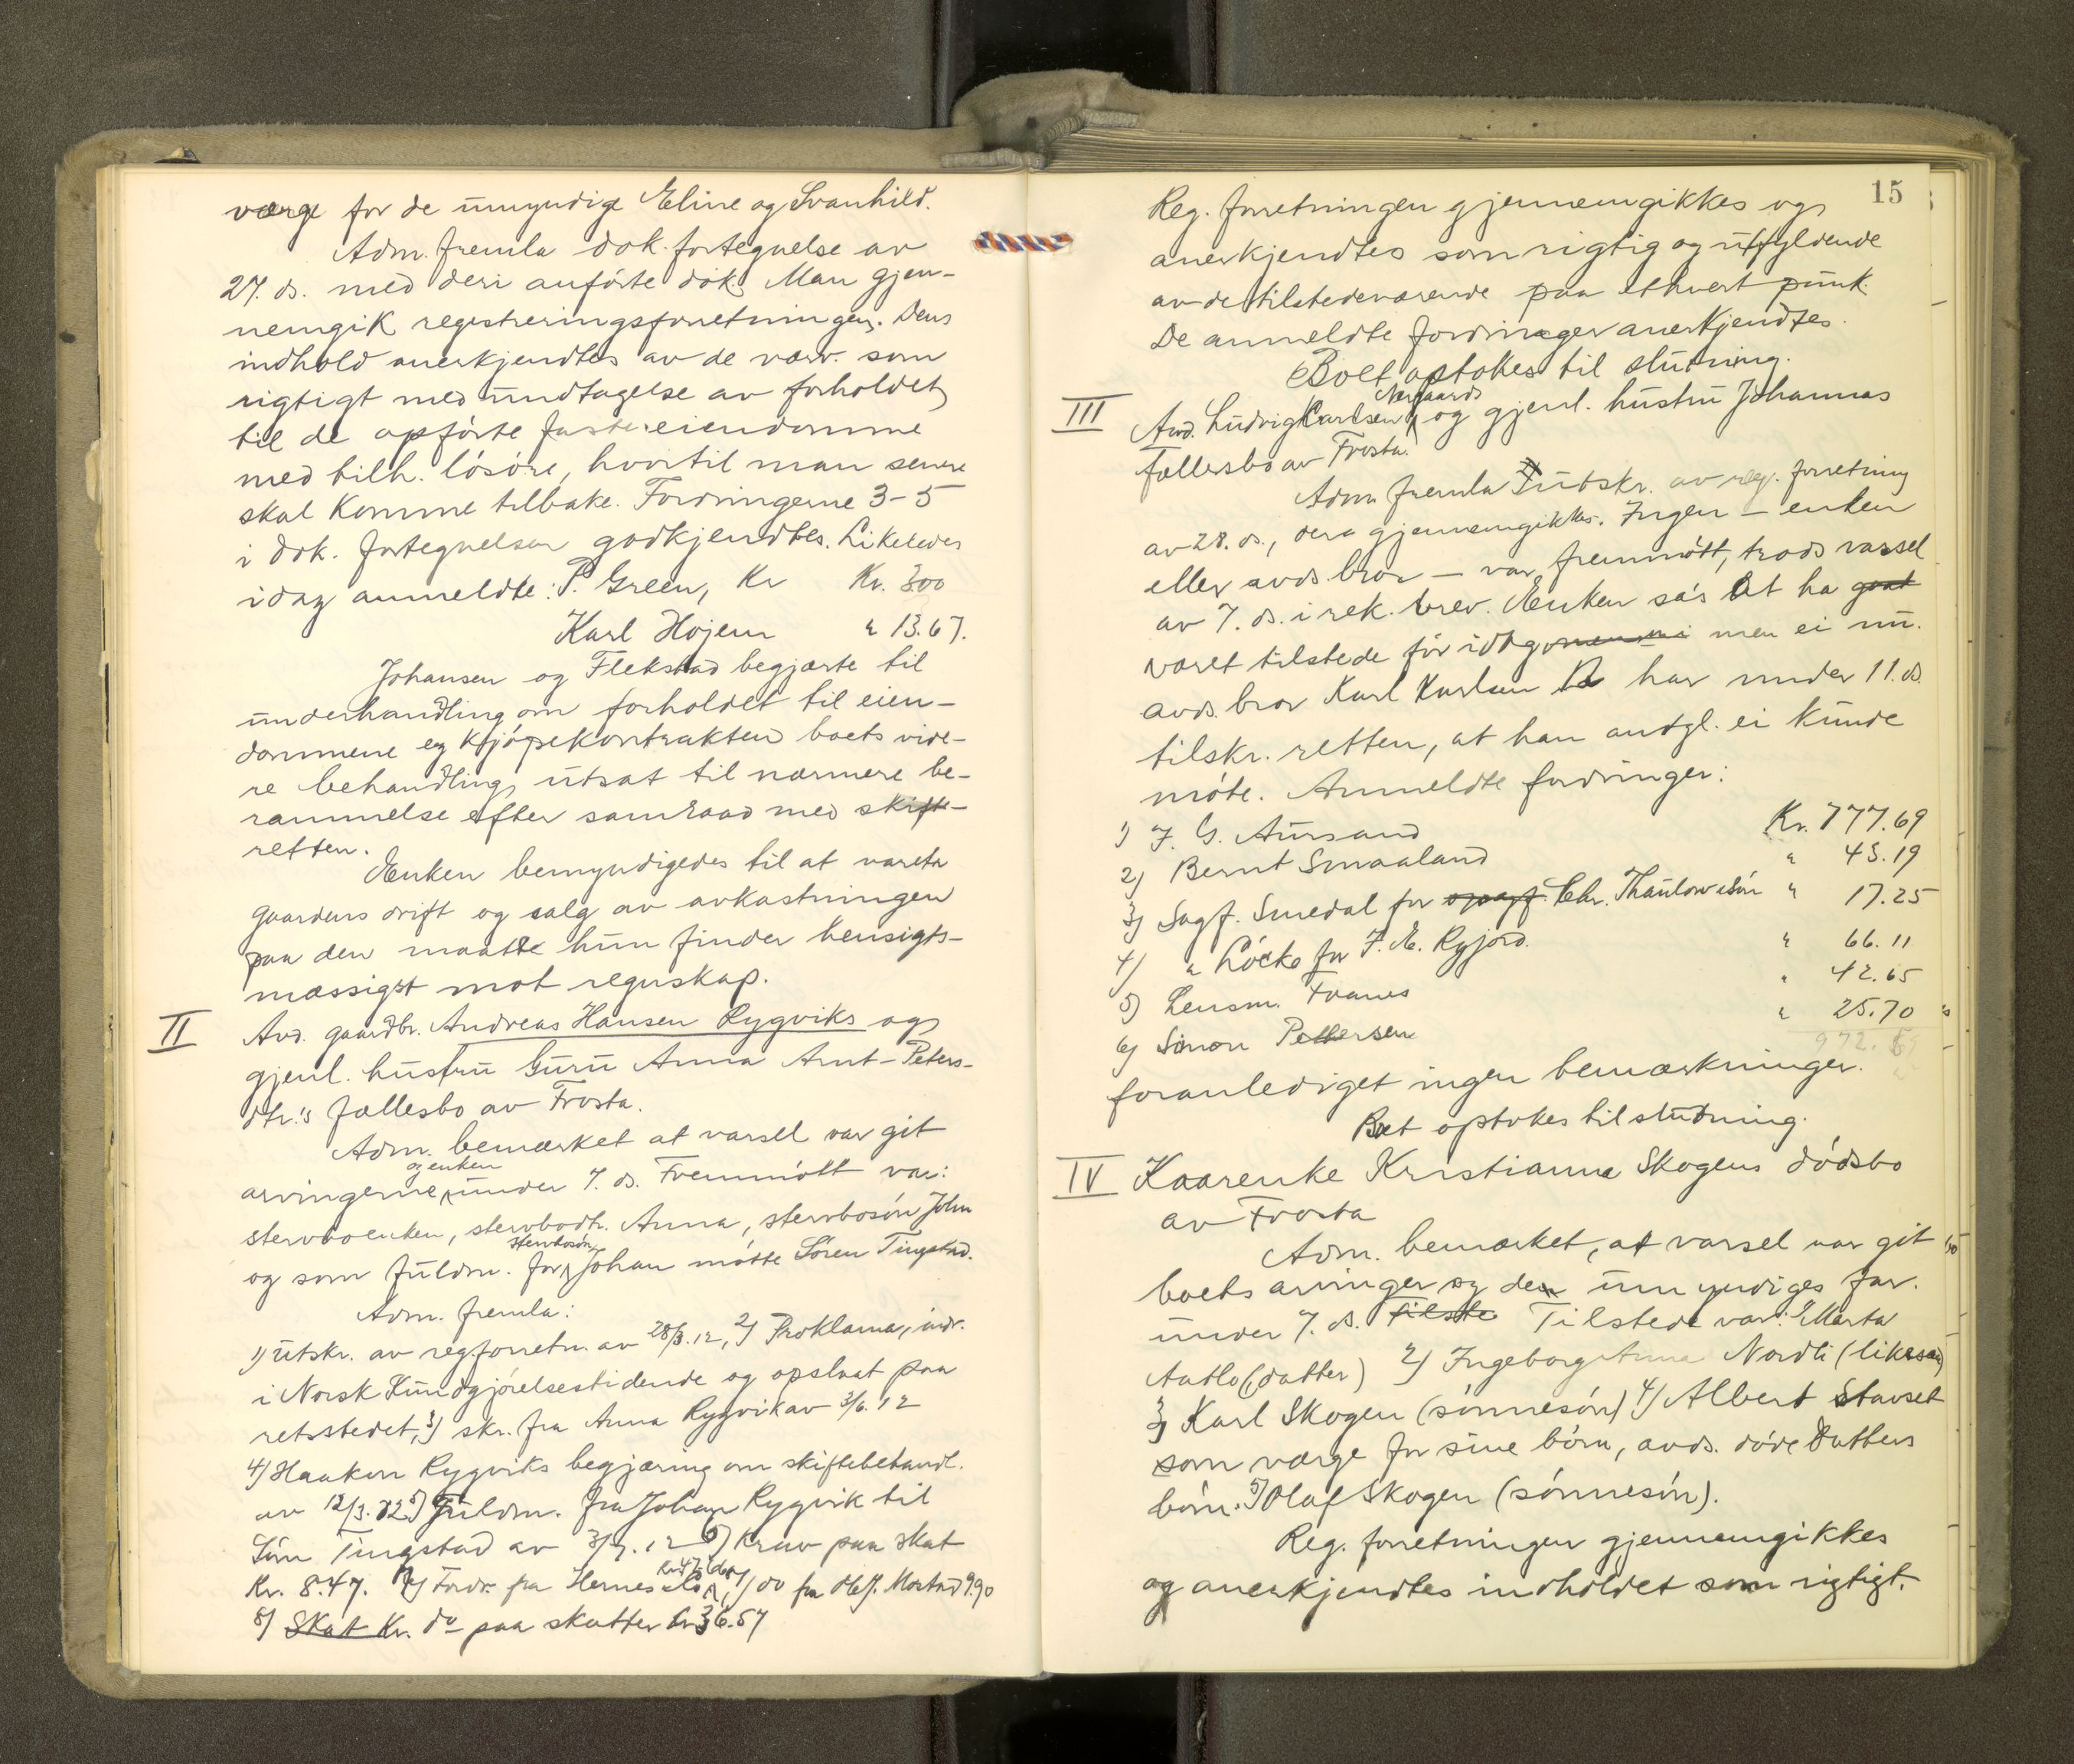 værge for de umyndige Eline og Svanhild.
Adm. fremla dok. fortegnelse av
27. ds. med deri anførte dok. Man gjen-
nemgik registreringsforretningen. Dens
indhold anerkjendtes av de værv. som
rigtigt med undtagelse av forholdet
til de opførte faste eiendomme
med tilh. løsøre, hvortil man senere
skal komme tilbake. Fordringerne 3-5
i dok. fortegnelsen godkjendtes. Likeledes
idag anmeldte: P. Green, Kr Kr. 300
Karl Hojem " 13.67.
Johansen og Flekstad begjærte til
underhandling om forholdet til eien-
dommene og kjøpekontrakten boets vide-
re behandling utsat til nærmere be-
rammelse efter samraad med skifte-
retten.
Enken bemyndigedes til at vareta
gaardens drift og salg av avkastningen
paa den maate hun finder hensigts-
mæssigst mot regnskap.
II Avd. gaardbr. Andreas Hansen Rygviks og
gjenl. hustru Guru Anna Arnt-Peters-
dtr.'s fællesbo av Frosta.
Adm. bemærket at varsel var git
arvingerne og enken under 7. ds. Fremmøtt var:
stervboenken, stervbodtr. Anna, stervbosøn John
og som fuldm. for stervbosøn Johan møtte Sören Tingstad.
Adm. fremla:
1) utskr. av reg.forretn. av 28/3.12, 2) Proklama, indr.
i Norsk Kundgjørelsestidende og opslaat paa
retsstedet, 3) skr. fra Anna Rygvik av 3/6.12
4) Haakon Rygviks begjæring om skiftebehandl.
av 12/3.12 5) Fuldm. fra Johan Rygvik til
Sören Tingstad av 3/7.12 6) Krav paa skat
Kr. 8.47. 7) Fordr. fra Hernes 7) do fra Ole J. Mostad 9.90
8) Skat Kr. do paa skatter kr 36.57
15
Reg. forretningen gjennemgikkes og
anerkjendtes som rigtig og utfyldende
av de tilstedeværende paa ethvert punk.
De anmeldte fordringer anerkjendtes.
Boet optokes til slutning.
III Avd. Ludvig Karlsen Norgaards og gjenl. hustru Johannas
fællesbo av Frosta.
Adm. fremla 1) utskr. av reg. forretning
av 28. ds., der gjennemgikkes. Ingen – enken
eller avds. bror – var fremmøtt, trods varsel
av 7. ds. i rek. brev. Enken sa's at ha goat
været tilstede før idag men ei nu.
avds. bror Karl Karlsen har under 11. ds.
tilskr. retten, at han andgl. ei kunde
møte. Anmeldte fordringer:
1) F. G. Aursand Kr. 777.69
2) Bernt Smaaland " 43.19
3) Sagf. Smedal for opagf. Chr. Thaulow & Søn " 17.25
4) " Löcke for F. E. Ryjord. " 66.11
5) Lensm. Franes " 42.65
6) Simon Pettersen " 25.70
972.59
foranlediget ingen bemærkninger.
Boet optokes til slutning.
IV Kaarenke Kristianna Skogens dødsbo
av Frosta
Adm. bemærket, at varsel var git
boets arvinger og den umyndiges far.
under 7. ds. Tilste Tilstede var: 1) Marta
Aatlo (datter) 2) Ingeborg Anna Nordli (likesaa)
3) Karl Skogen (sønnesøn) 4) Albert Stavset
som værge for sine børn, avds. døde datters
børn. 5) Olaf Skogen (sønnesøn).
Reg. forretningen gjennemgikkes
og anerkjendtes indholdet som rigtigt.